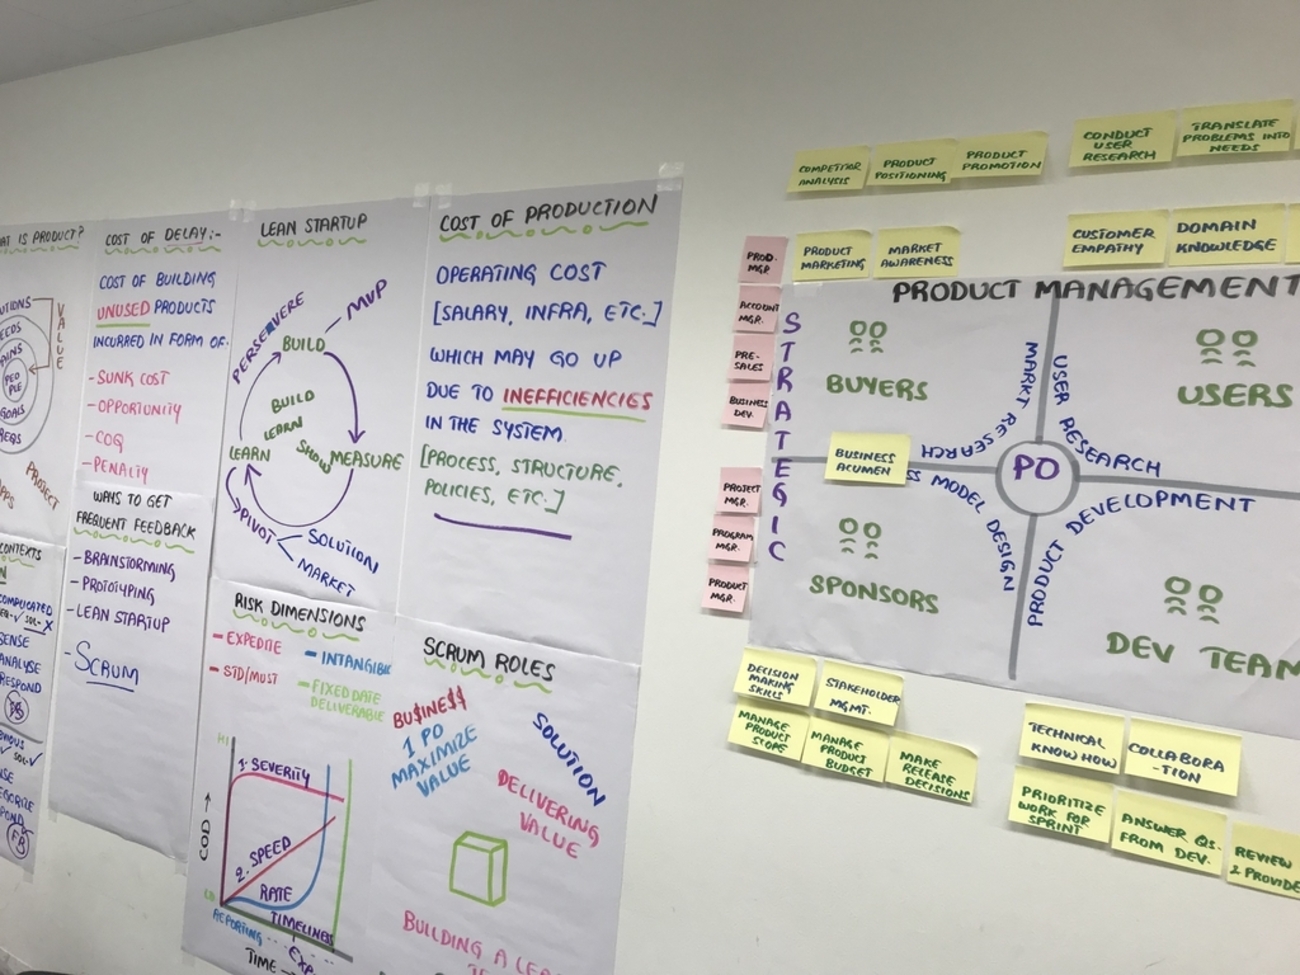 AT IS PRODUCT?
VALUE
PEO
PLE
GOALS
REQS
PROJECT
COST OF DELAY:-
COST OF BUILDING
UNUSED PRODUCTS
INCURRED IN FORM OF.
- SUNK COST
- OPPORTUNITY
- COQ
- PENALTY
WAYS TO GET
FREQUENT FEEDBACK
- BRAINSTORMING
- PROTOTYPING
- LEAN STARTUP
- SCRUM
CONTEXTS
COMPLICATED
SENSE
ANALYSE
RESPOND
LEAN STARTUP
PERSEVERE
MVP
BUILD
BUILD
LEARN
SHOW
LEARN
MEASURE
PIVOT
SOLUTION
MARKET
COST OF PRODUCTION
OPERATING COST
[SALARY, INFRA, ETC.]
WHICH MAY GO UP
DUE TO INEFFICIENCIES
IN THE SYSTEM.
[PROCESS, STRUCTURE,
POLICIES, ETC.]
RISK DIMENSIONS
- EXPEDITE
- INTANGIBLE
- STD/MUST
- FIXED DATE
DELIVERABLE
HI
COD →
1. SEVERITY
2. SPEED
RATE
TIMELINESS
REPORTING
TIME →
SCRUM ROLES
BU$INE$$
1 PO
MAXIMIZE
VALUE
SOLUTION
DELIVERING
VALUE
BUILDING A
COMPETITOR
ANALYSIS
PRODUCT
POSITIONING
PRODUCT
PROMOTION
CONDUCT
USER
RESEARCH
TRANSLATE
PROBLEMS INTO
NEEDS
PRODUCT
MARKETING
MARKET
AWARENESS
CUSTOMER
EMPATHY
DOMAIN
KNOWLEDGE
PROD.
MGR.
ACCOUNT
MGR.
PRE-
SALES
BUSINESS
DEV.
PROJECT
MGR.
PROGRAM
MGR.
PRODUCT
MGR.
STRATEGIC
PRODUCT MANAGEMENT
BUYERS
MARKET RESEARCH
USER RESEARCH
USERS
BUSINESS
ACUMEN
PO
SS MODEL DESIGN
PRODUCT DEVELOPMENT
SPONSORS
DEV TEAM
DECISION
MAKING
SKILLS
STAKEHOLDER
MGMT.
MANAGE
PRODUCT
SCOPE
MANAGE
PRODUCT
BUDGET
MAKE
RELEASE
DECISIONS
TECHNICAL
KNOW HOW
COLLABORA
-TION
PRIORITIZE
WORK FOR
SPRINT
ANSWER QS.
FROM DEV.
REVIEW
& PROVIDE